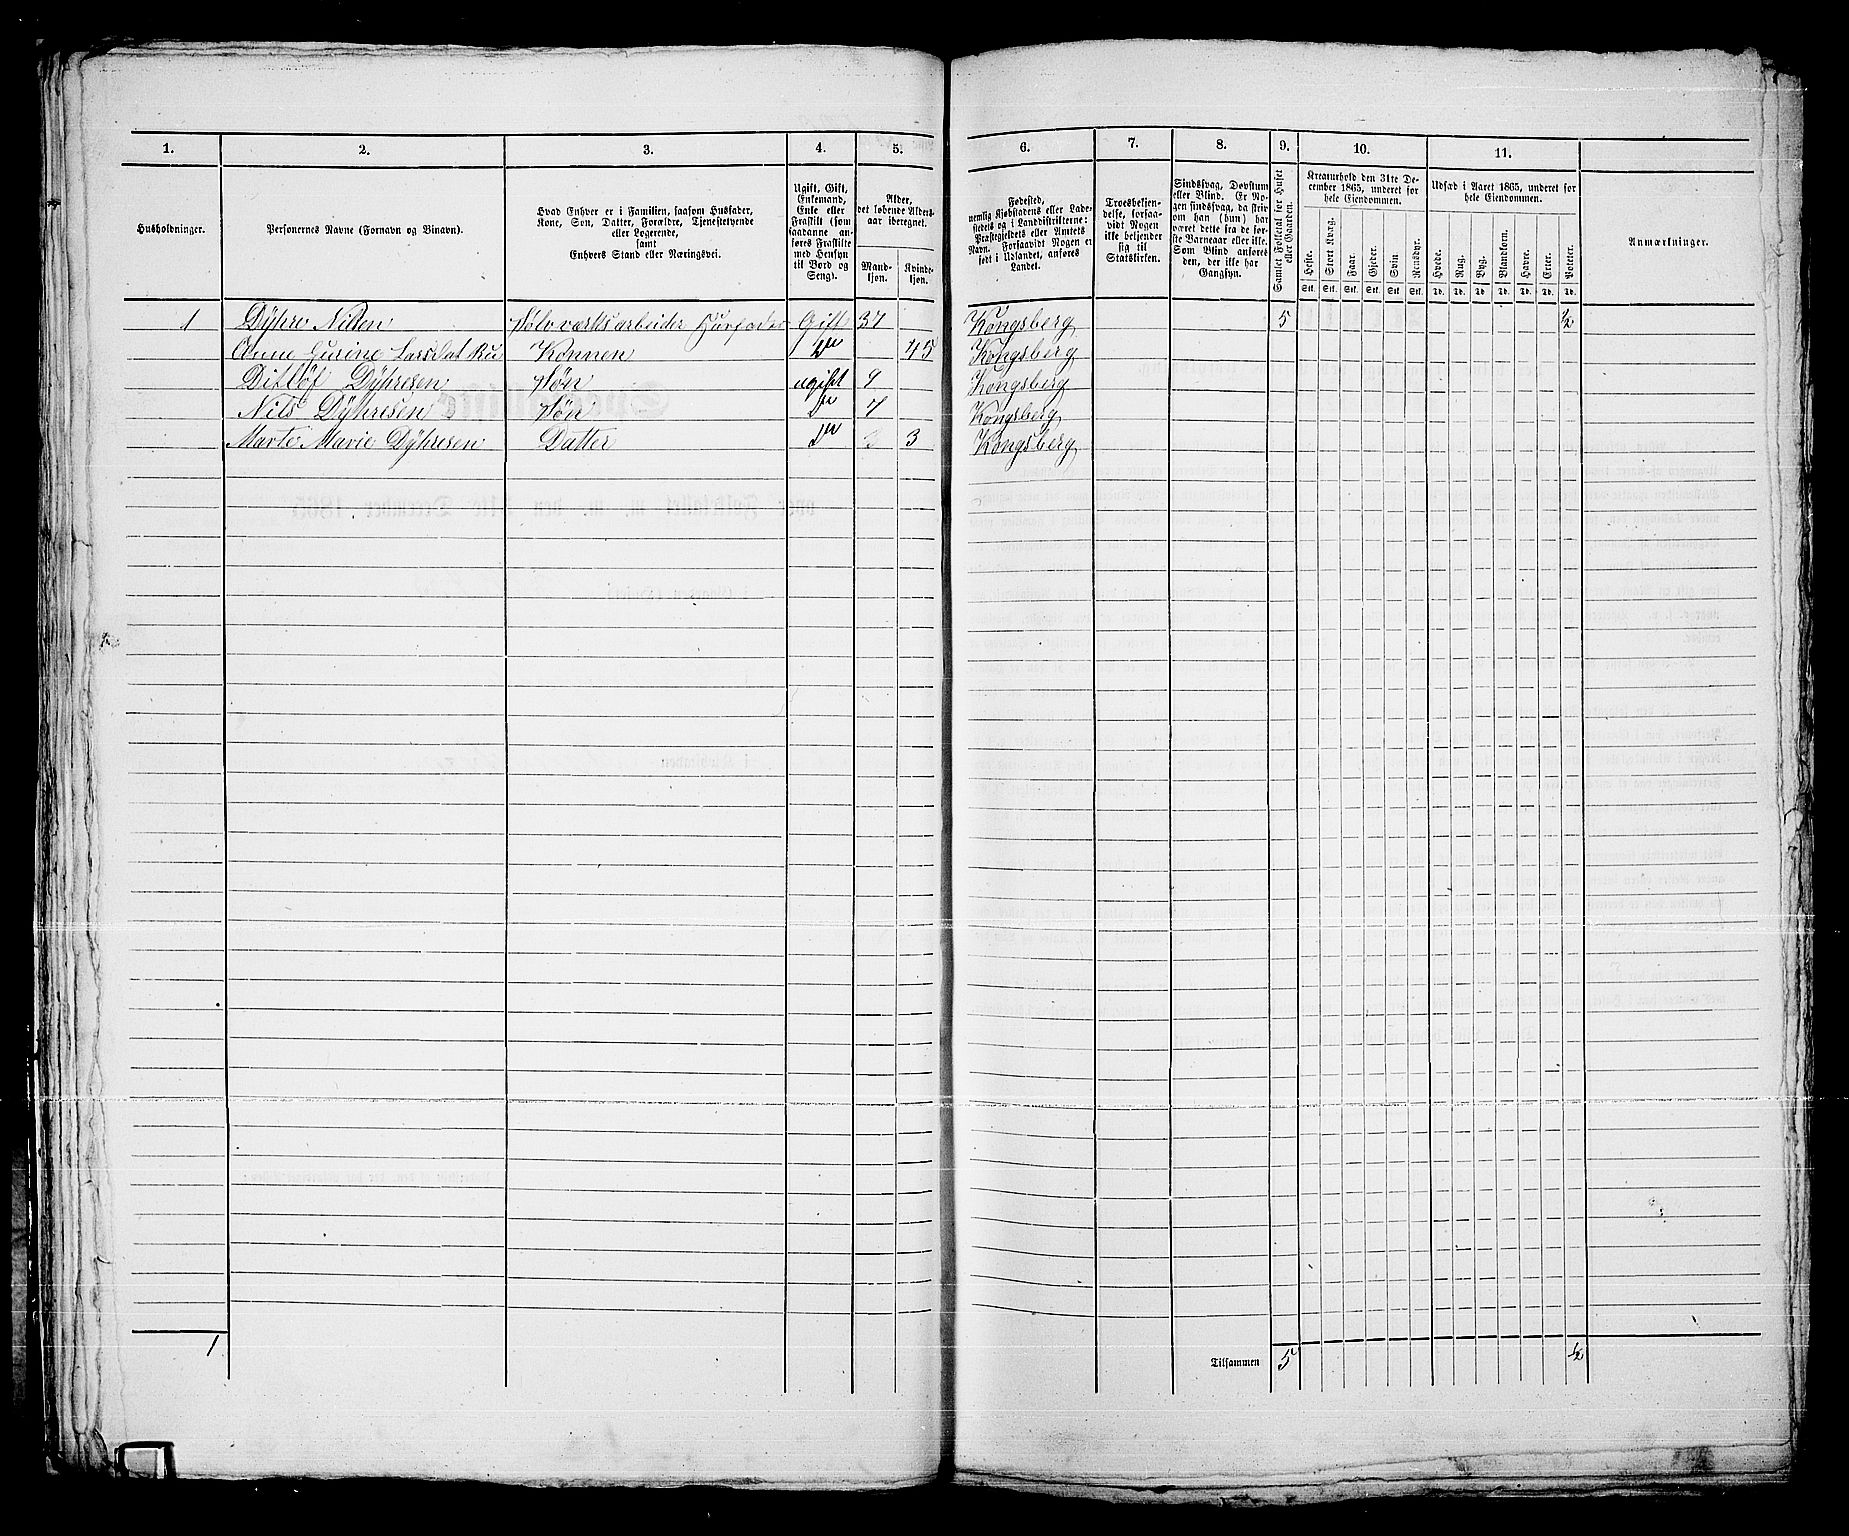 1. 2. 3. 4. 5. 6. 7. 8. 9. 10. 11.
Husholdninger.
Personernes Navne (Fornavn og Binavn).
Hvad Enhver er i Familien, saasom Husfader,
Kone, Søn, Datter, Forældre, Tjenestetyende
eller Logerende,
samt
Enhvers Stand eller Næringsvei.
Ugift, Gift,
Enkemand,
Enke eller
Fraskilt (som
saadanne an-
føres Fraskilte
med Hensyn
til Bord og
Seng).
Alder,
det løbende Alders-
aar iberegnet.
Mand-
kjøn.
Kvinde-
kjøn.
Fødested,
nemlig Kjøbstadens eller Lade-
stedets og i Landdistrikterne:
Præstegjeldets eller Amtets
Navn. Forsaavidt Nogen er
født i Udlandet, anføres
Landet.
Troesbekjen-
delse, forsaa-
vidt Nogen
ikke bekjender
sig til
Statskirken.
Sindssvag, Døvstum
eller Blind. Er No-
gen sindssvag, da skriv
om han (hun) har
været dette fra de før-
ste Barneaar eller ikke.
Som Blind anføres
den, der ikke har
Gangsyn.
Samlet Folketal for Huset
eller Gaarden.
Kreaturhold den 31te De-
cember 1865, underet for
hele Eiendommen.
Heste. Stort Kvæg. Faar. Gjeder. Svin Rensdyr.
Stk. Stk. Stk. Stk. Stk. Stk.
Udsæd i Aaret 1865, underet for
hele Eiendommen.
Hvede. Rug. Byg. Blandkorn. Havre. Erter. Poteter.
Td. Td. Td. Td. Td. Td. Td.
Anmærkninger.
1 Dÿhre Nilsen Sølvværksarbeider Husfader Gift 37 Kongsberg 5 1/2
Anne Gurine Larsdat Ru Konnen do 45 Kongsberg
Ditløf Dÿhresen Søn ugift 9 Kongsberg
Nils Dÿhresen Søn do 7 Kongsberg
Marte Marie Dÿhresen Datter do 3 Kongsberg
1 Tilsammen 5 1/2